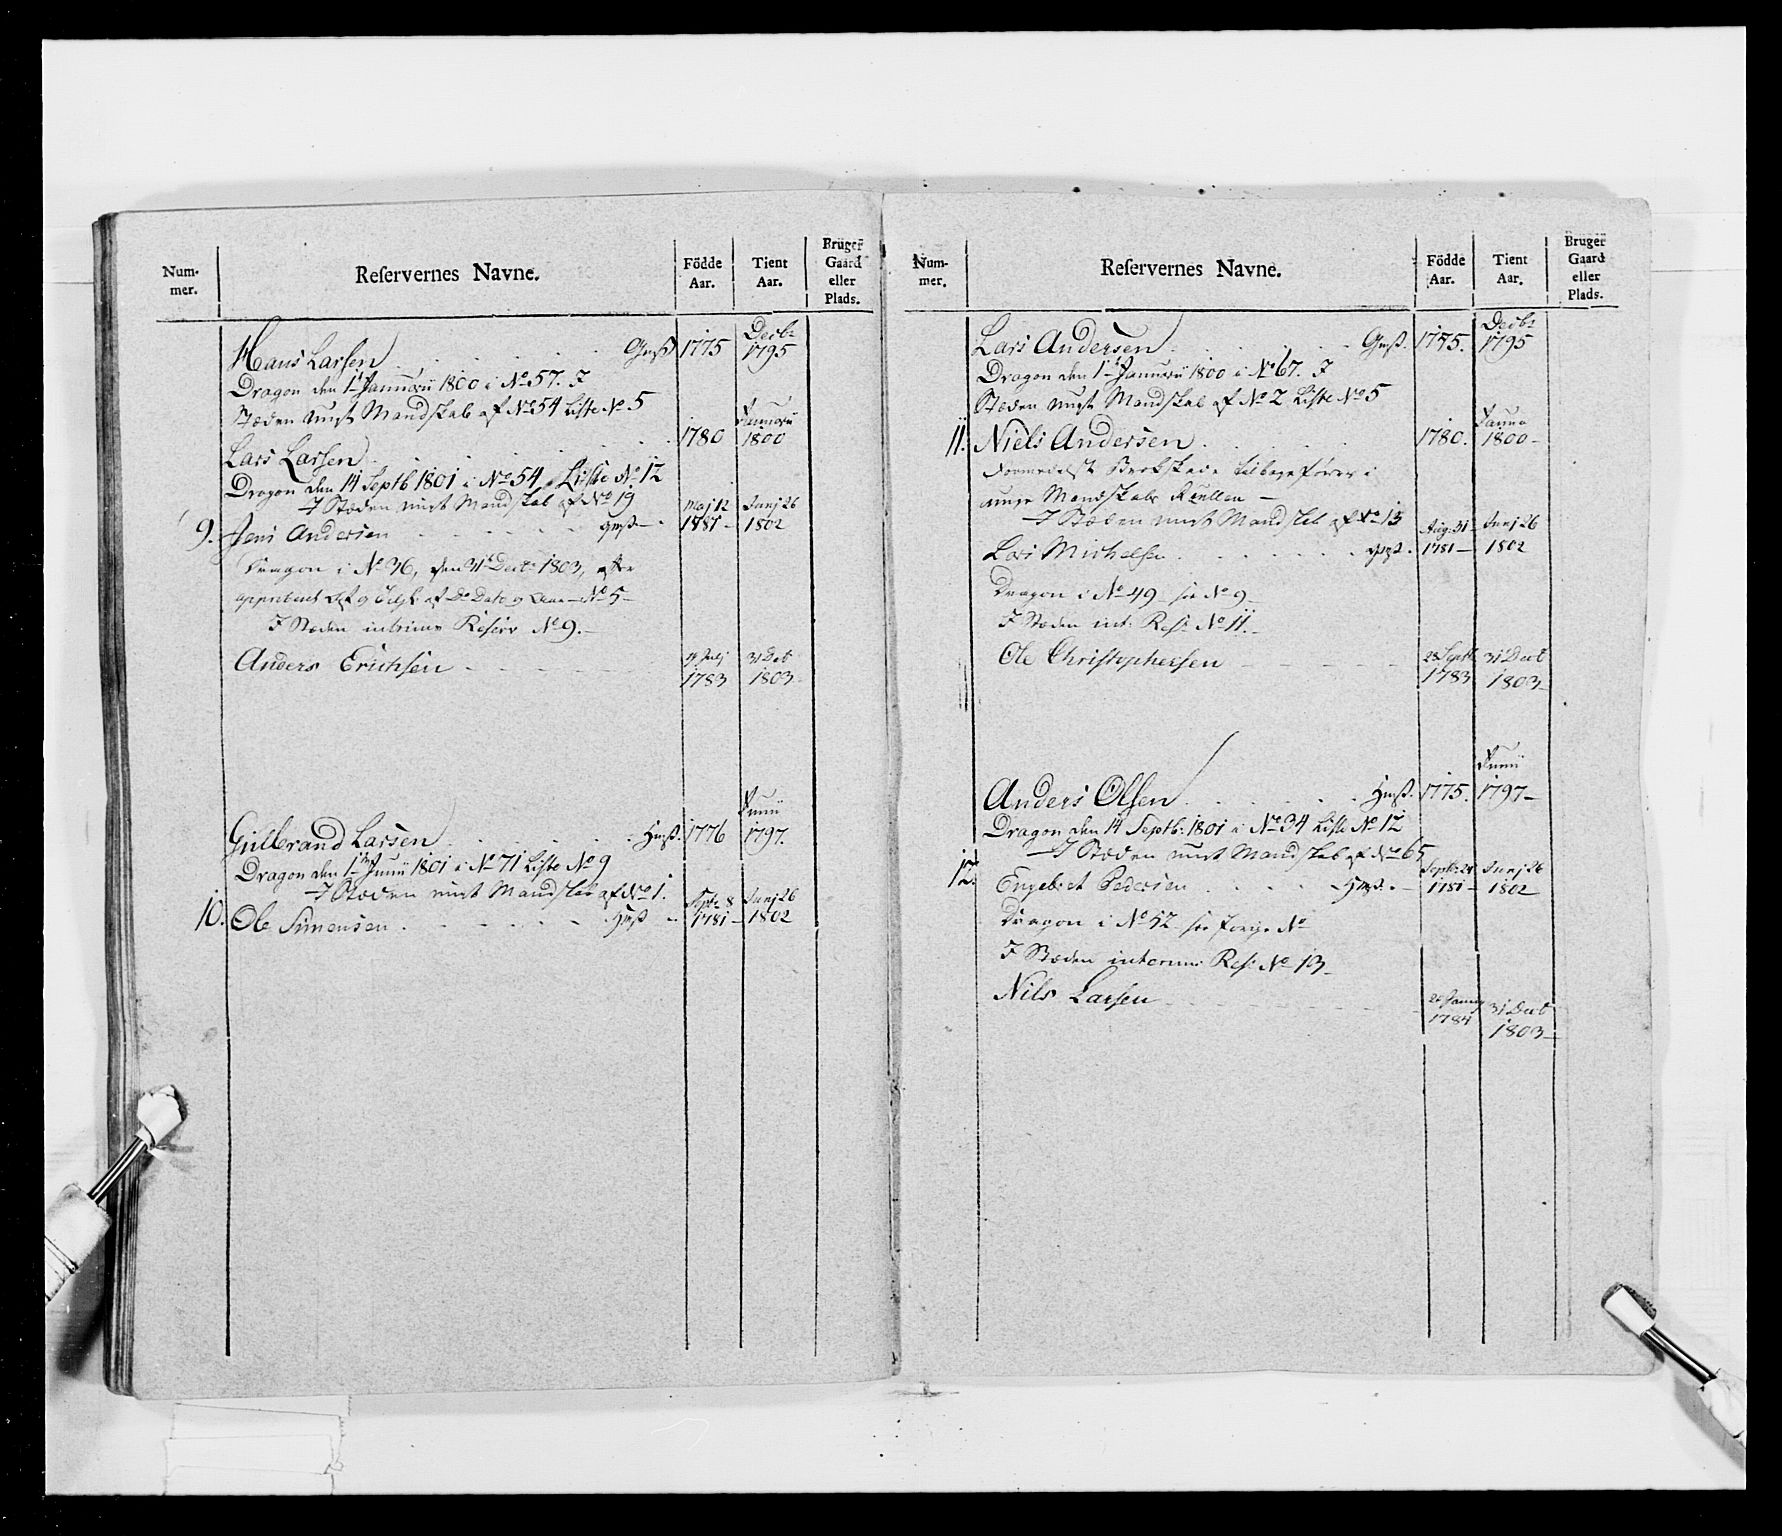 Num-
mer.
Reservernes Navne.
Födde
Aar.
Tient
Aar.
Brüger
Gaard
eller
Plads.
Hans Larsen Gmß 1775 Decbr 1795
Dragon den 1te Januarii 1800 i No 57. I
Stæden ungt Mandskab af No 54 Liste No 5
Lars Larsen 1780 Januarii 1800
Dragon den 14 Septb 1801 i No 54 Liste No 12
I Stæden ungt Mandskab af No 19
9. Jens Andersen Gmß 1781 Maj 12 Junj 26 1802
Dragon i No 36, den 31te Decbr 1803, efter
No 5
I Stæden interims Reserv No 9.
Anders Erichsen Julj 1783 31 Decb 1803
Gulbrand Larsen Hmß. 1776 Junii 1797.
Dragon den 1te Junii 1801 i No 71 Liste No 9
I Stæden ungt Mandskab af No 1.
10. Ole Simensen Hmß Septr 8 1781 Junj 26 1802
Num-
mer.
Reservernes Navne.
Födde
Aar.
Tient
Aar.
Bruger
Gaard
eller
Plads.
Lars Andersen Gmß. 1775. Decbr 1795
Dragon den 1te Januarii 1800 i No 67. I
Stæden ungt Mandskab af No 2 Liste No 5
11. Niels Andersen 1780. Janua 1800
tilbageförer i
unge Mandskabs Rullen
I Stæden ungt Mandskb af No 13
Lars Michelsen Gmß. Aug: 31 1781 Junj 26 1802
Dragon i No 49 see No 9
I Stæden int: Res: No 11.
Ole Christophersen 28 Septb 1783 31 Decb 1803
Anders Olsen Hmß. 1775. Junii 1797
Dragon den 14 Septb: 1801 i No 34 Liste No 12
I Stæden ungt Mandskab af No 65
12. Engebret Pedersen Hmß. Septr 24 1781 Junj 26 1802
Dragon i No 52 see forrige No
I Stæden interims Res: No 13
Nils Larsen 1784 31 Decb 1803